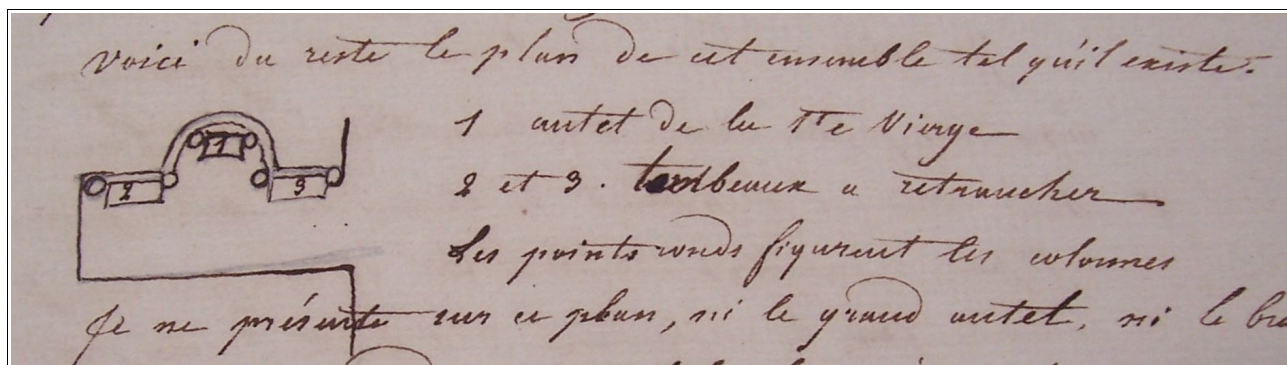 voici du reste le plan de cet ensemble tel qu'il existe.
1 autel de la Ste Vierge
2 et 3. tombeaux a retrancher
Les points ronds figurent les colonnes
1
2
3
Je ne présente sur ce plan, ni le grand autel, ni le